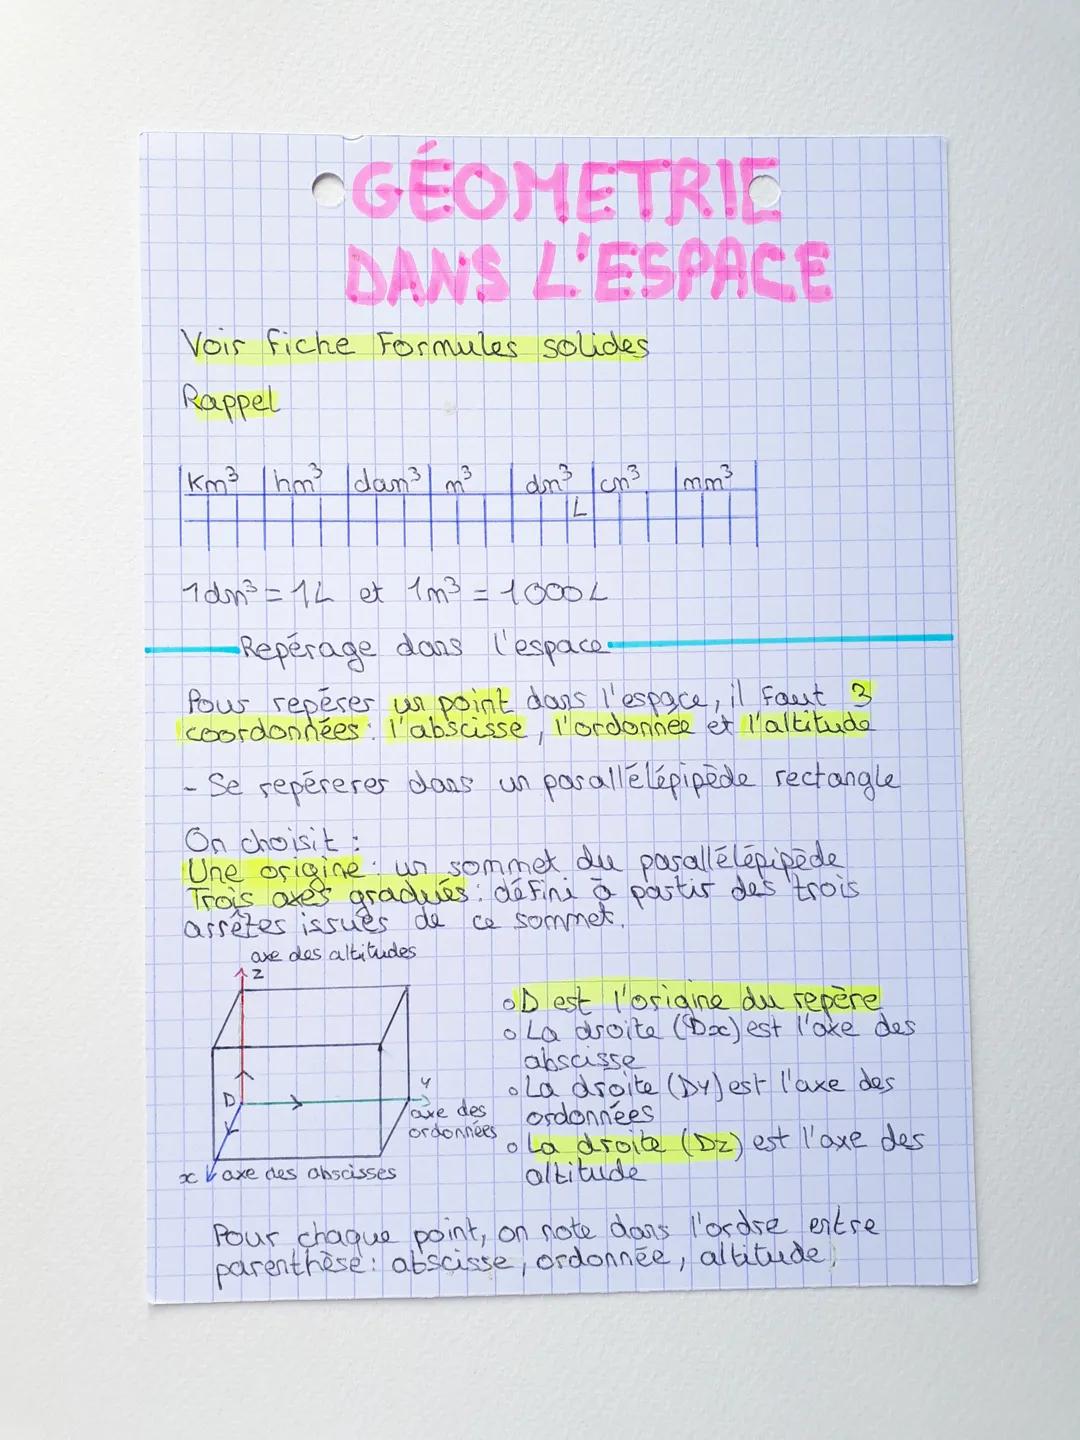 GÉOMETRIE
DANS L'ESPACE
Voir fiche Formules solides
Rappel
Km³ hm³ dam³ m³ dm³ cm³ mm³
L
1dm³ = 1L et 1m³ = 1000L
Repérage dans l'espace
Pour repérer un point dans l'espace, il faut 3
coordonnées : l'abscisse, l'ordonnée et l'altitude
- Se repérerer dans un parallélépipède rectangle
On choisit :
Une origine : un sommet du parallélépipède
Trois axes gradués : défini à partir des trois
arrêtes issues de ce sommet.
axe des altitudes
z
D
y
axe des
ordonnées
x axe des abscisses
○ D est l'origine du repère
○ La droite (Dx) est l'axe des
abscisse
○ La droite (Dy) est l'axe des
ordonnées
○ La droite (Dz) est l'axe des
altitude
Pour chaque point, on note dans l'ordre entre
parenthèse : abscisse, ordonnée, altitude.